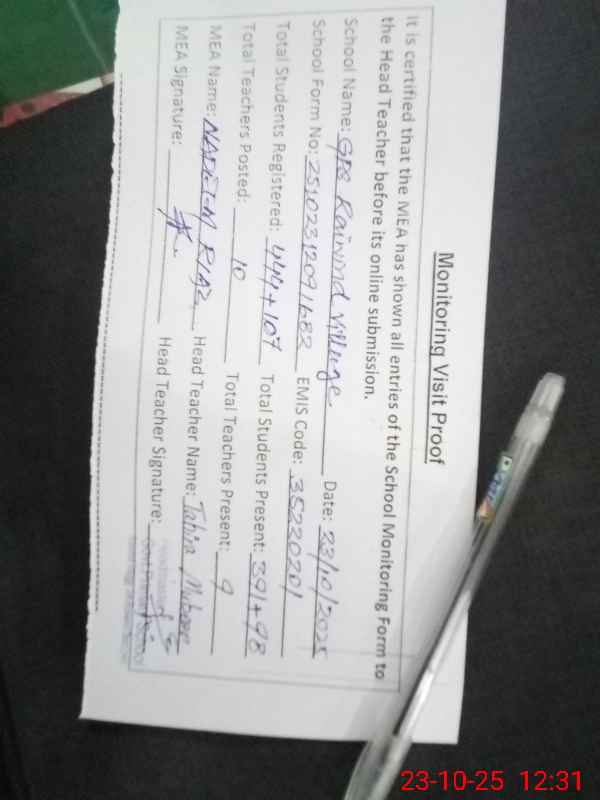 Monitoring Visit Proof
It is certified that the MEA has shown all entries of the School Monitoring Form to
the Head Teacher before its online submission.
School Name: GPS Raiwind village Date: 23/10/2025
School Form No: 2510231209/1682 EMIS Code: 35220201
Total Students Registered: 444+107 Total Students Present: 391+98
Total Teachers Posted: 10 Total Teachers Present: 9
MEA Name: NADEEM RIAZ Head Teacher Name: Tahira
MEA Signature: Head Teacher Signature:
23-10-25 12:31